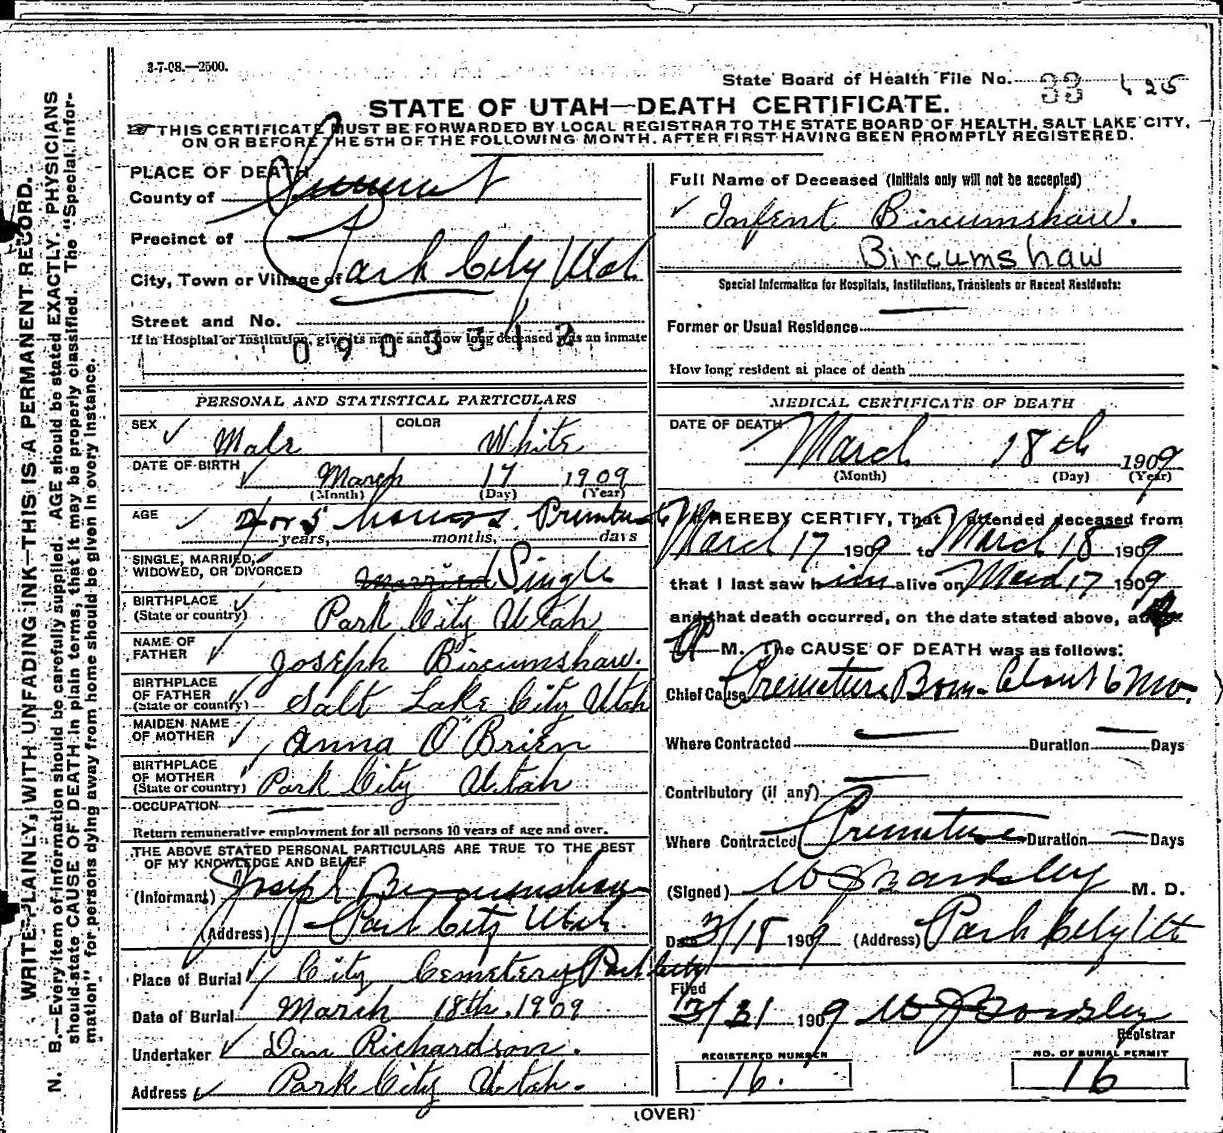 3-7-08.—2500.
State Board of Health File No. 33 425
STATE OF UTAH—DEATH CERTIFICATE.
THIS CERTIFICATE MUST BE FORWARDED BY LOCAL REGISTRAR TO THE STATE BOARD OF HEALTH, SALT LAKE CITY,
ON OR BEFORE THE 5TH OF THE FOLLOWING MONTH, AFTER FIRST HAVING BEEN PROMPTLY REGISTERED.
N. B.—Every item of information should be carefully supplied. AGE should be stated EXACTLY. PHYSICIANS
should state CAUSE OF DEATH in plain terms, that it may be properly classified. The "Special Infor-
mation" for persons dying away from home should be given in every instance.
WRITE PLAINLY, WITH UNFADING INK—THIS IS A PERMANENT RECORD.
PLACE OF DEATH
County of Summit
Precinct of
City, Town or Village of Park City Utah
Street and No.
If in Hospital or Institution, give its name and how long deceased was an inmate
0903312
PERSONAL AND STATISTICAL PARTICULARS
SEX Male COLOR White
DATE OF BIRTH March 17 1909
(Month) (Day) (Year)
AGE 4 or 5 hours. Premture
years, months, days
SINGLE, MARRIED,
WIDOWED, OR DIVORCED Married Single
BIRTHPLACE
(State or country) Park City Utah
NAME OF
FATHER Joseph Bircumshaw.
BIRTHPLACE
OF FATHER
(State or country) Salt Lake City Utah
MAIDEN NAME
OF MOTHER Anna O"Brien
BIRTHPLACE
OF MOTHER
(State or country) Park City Utah
OCCUPATION
Return remunerative employment for all persons 10 years of age and over.
THE ABOVE STATED PERSONAL PARTICULARS ARE TRUE TO THE BEST
OF MY KNOWLEDGE AND BELIEF
(Informant) Joseph Bircumshaw
(Address) Park City Utah.
Place of Burial City Cemetery Park City
Date of Burial March 18th, 1909
Undertaker Dan Richardson.
Address Park City Utah.
Full Name of Deceased (Initials only will not be accepted)
Infent Bircumshaw.
Bircumshaw
Special Information for Hospitals, Institutions, Transients or Recent Residents:
Former or Usual Residence
How long resident at place of death
MEDICAL CERTIFICATE OF DEATH
DATE OF DEATH March 18th 1909
(Month) (Day) (Year)
I HEREBY CERTIFY, That I attended deceased from
March 17 1909 to March 18 1909
that I last saw him alive on March 17 1909
and that death occurred, on the date stated above, at
M. The CAUSE OF DEATH was as follows:
Chief Cause Premature Born - About 6 Mo.
Where Contracted Duration Days
Contributory (if any)
Where Contracted Premature Duration Days
(Signed) M. D.
Date 3/18 1909 (Address) Park City Ut
Filed
3/31 1909
Registrar
REGISTERED NUMBER
16.
NO. OF BURIAL PERMIT
16
(OVER)